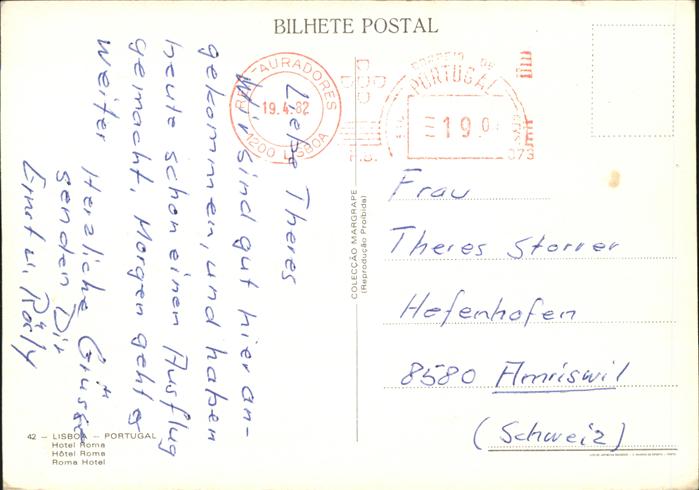 BILHETE POSTAL
RESTAURADORES
19.4.82
1200 LISBOA
CORREIO DE
PORTUGAL
P.S.
Liebe Theres
Wir sind gut hier an-
gekommen, und haben
heute schon einen Ausflug
gemacht. Morgen geht es
weiter
Herzliche Grüsse
senden Dir
Ernst u. Rösly
COLECÇÃO MARGRAPE
(Reprodução Proibida)
Frau
Theres Storrer
Hefenhofen
8580 Amriswil
(Schweiz)
42 – LISBOA – PORTUGAL
Hotel Roma
Hôtel Roma
Roma Hotel